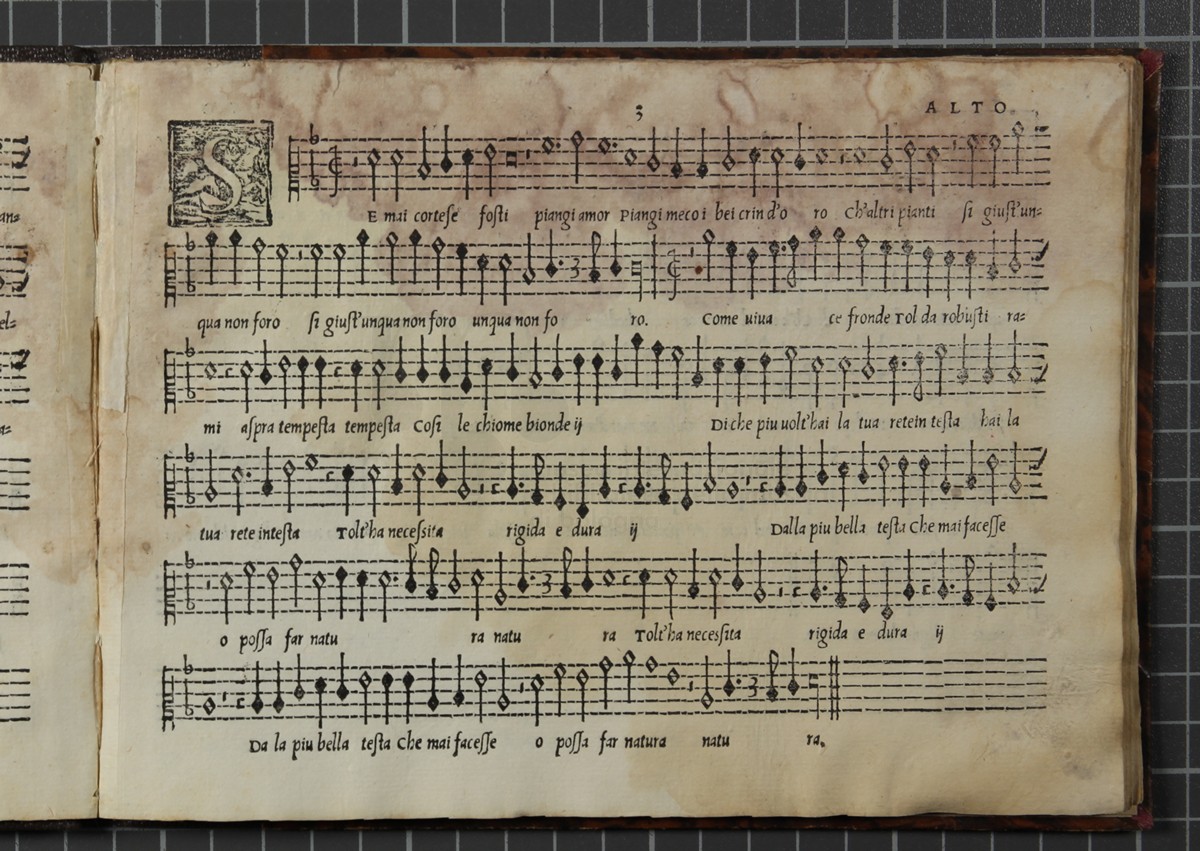 3
ALTO
SE mai cortese fosti piangi amor Piangi meco i bei crin d'o ro Ch'altri pianti si giust'un=
qua non foro si giust'unqua non foro unqua non fo ro. Come uiua ce fronde Tol da robusti ra=
mi aspra tempesta tempesta Cosi le chiome bionde ij Di che piu uolt'hai la tua rete in testa hai la
tua rete intesta Tolt'ha necessita rigida e dura ij Dalla piu bella testa Che mai facesse
o possa far natu ra natu ra Tolt'ha necessita rigida e dura ij
Da la piu bella testa Che mai facesse o possa far natura natu ra.
an=
el=
a=